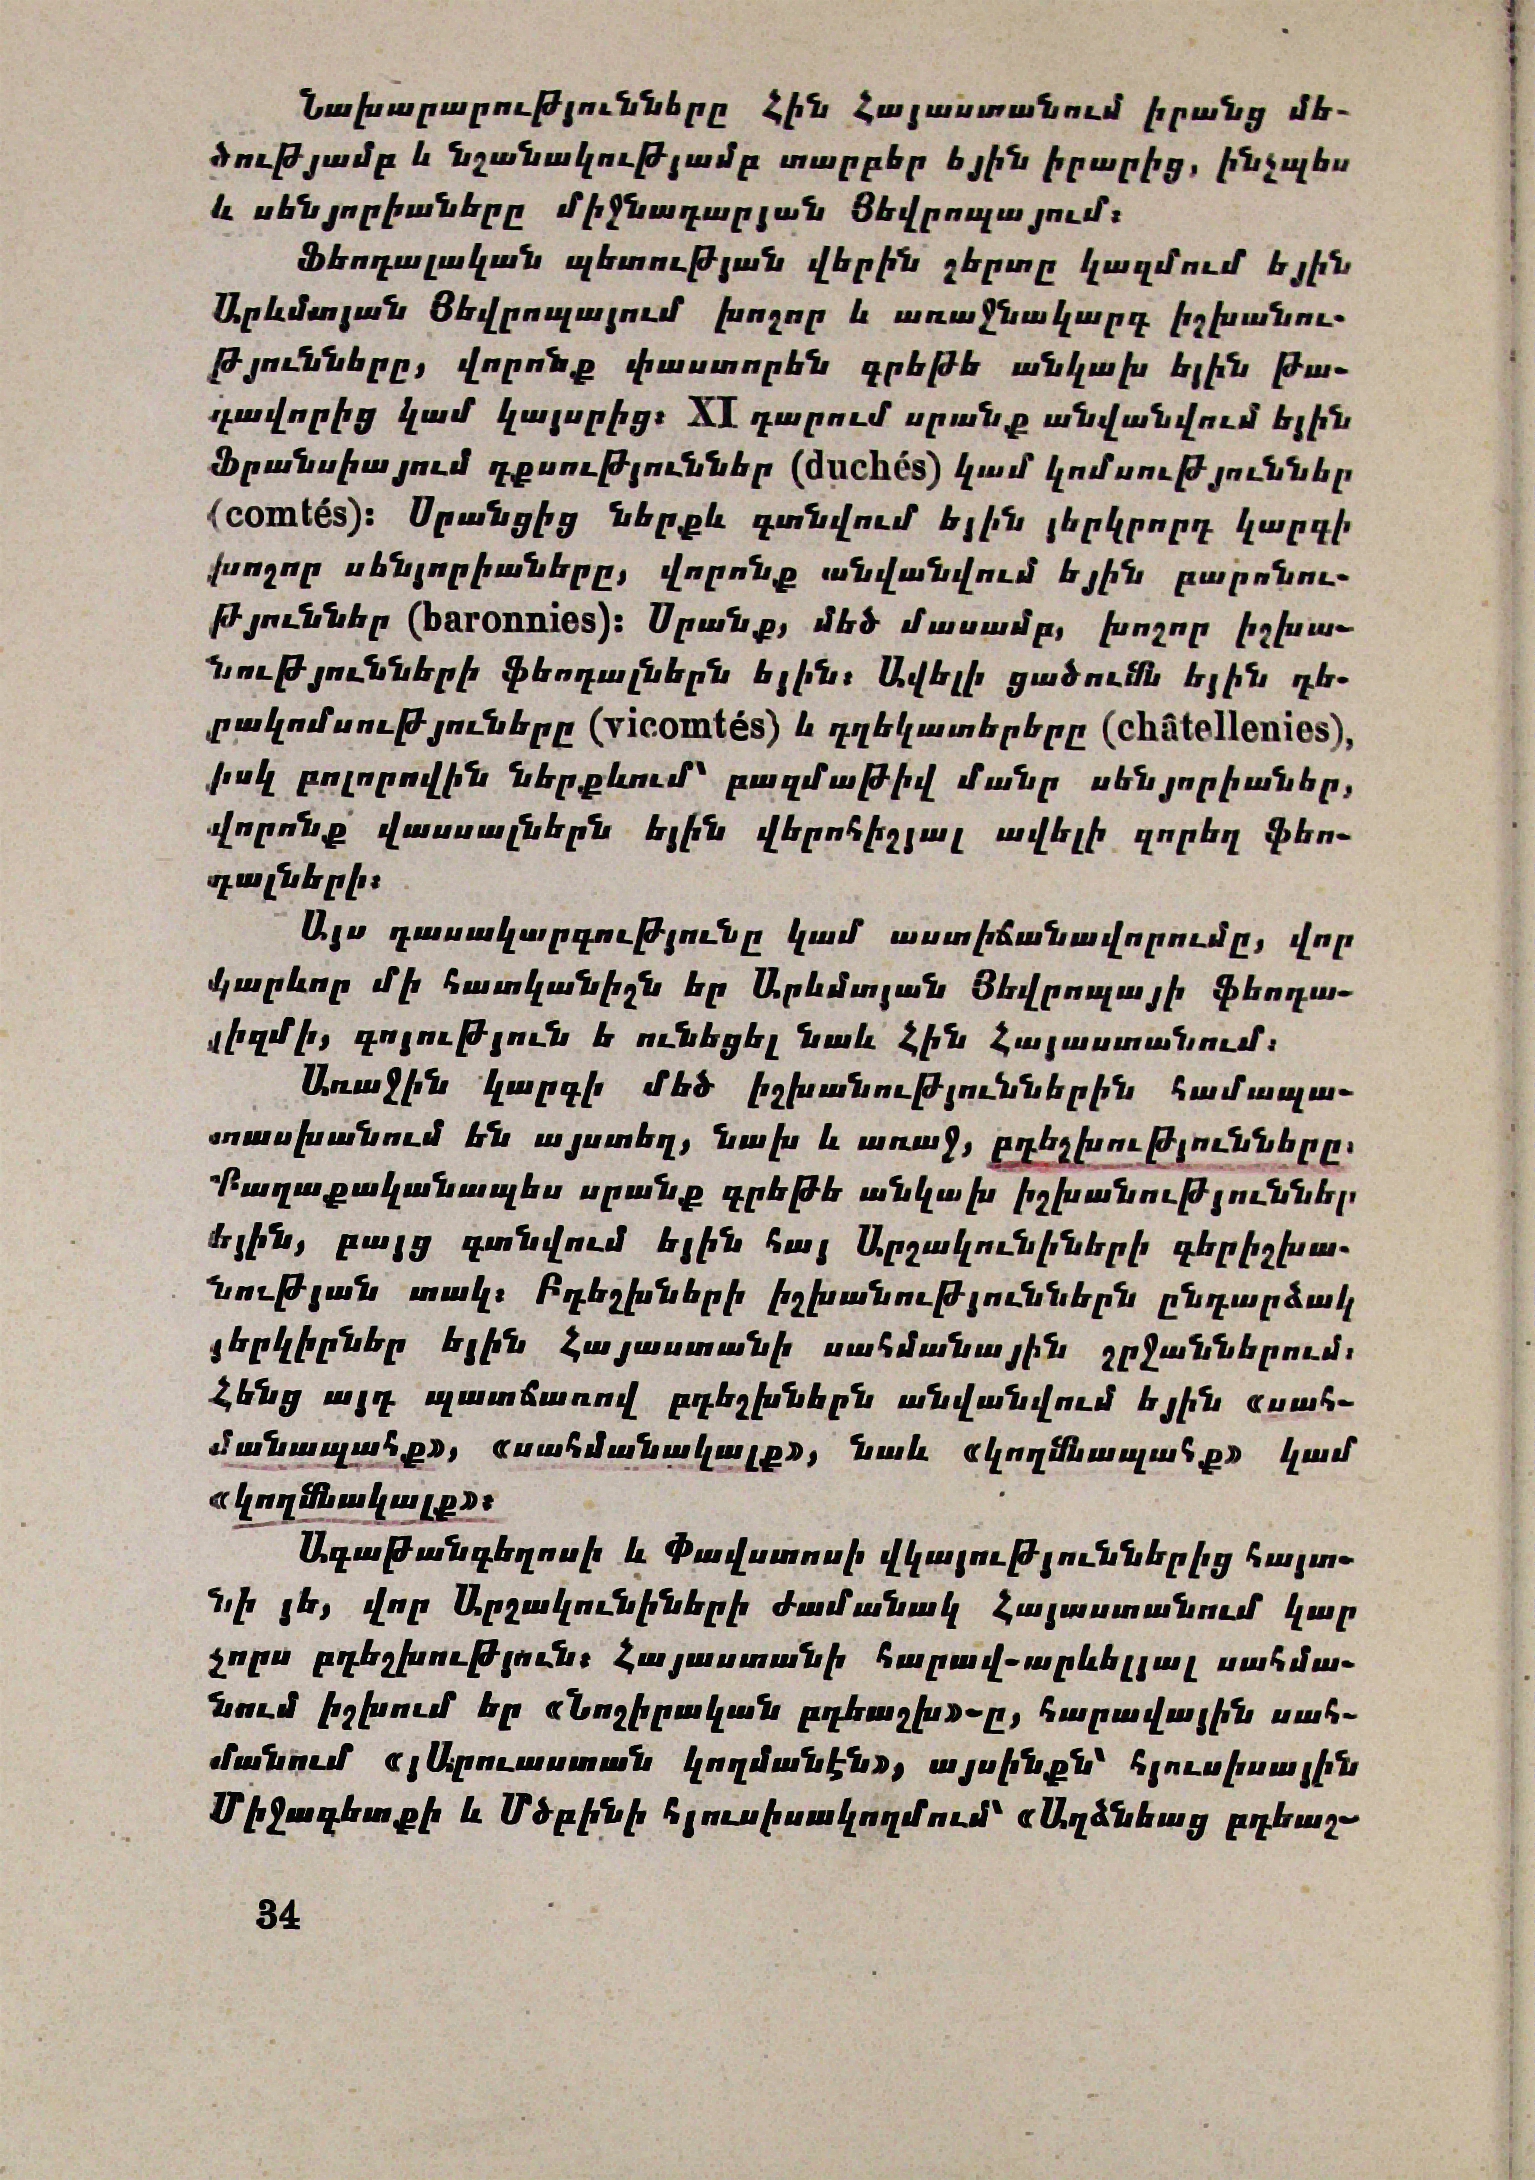 Նախարարությունները Հին Հայաստանում իրանց մե-
ծությամբ և նշանակությամբ տարբեր եյին իրարից, ինչպես
և սենյորիաները միջնադարյան Յեվրոպայում:
Ֆեոդալական պետության վերին շերտը կազմում եյին
Արևմտյան Յեվրոպայում խոշոր և առաջնակարգ իշխանու-
թյունները, վորոնք փաստորեն գրեթե անկախ եյին թա-
գավորից կամ կայսրից: XI դարում սրանք անվանվում եյին
Ֆրանսիայում դքսություններ (duchés) կամ կոմսություններ
(comtés): Սրանցից ներքև գտնվում եյին յերկրորդ կարգի
խոշոր սենյորիաները, վորոնք անվանվում եյին բարոնու-
թյուններ (baronnies): Սրանք, մեծ մասամբ, խոշոր իշխա-
նությունների ֆեոդալներն եյին: Ավելի ցածումն եյին դե-
րակոմսություները (vicomtés) և դղեկատերերը (châtellenies),
իսկ բոլորովին ներքևում՝ բազմաթիվ մանր սենյորիաներ,
վորոնք վասսալներն եյին վերոհիշյալ ավելի զորեղ ֆեո-
դալների:
Այս դասակարգությունը կամ աստիճանավորումը, վոր
կարևոր մի հատկանիշն եր Արևմտյան Յեվրոպայի ֆեոդա-
լիզմի, գոյություն ե ունեցել նաև Հին Հայաստանում:
Առաջին կարգի մեծ իշխանություններին համապա-
տասխանում են այստեղ, նախ և առաջ, բդեշխությունները:
Քաղաքականապես սրանք գրեթե անկախ իշխանություններ
եյին, բայց գտնվում եյին հայ Արշակունիների գերիշխա-
նության տակ: Բդեշխների իշխանություններն ընդարձակ
յերկիրներ եյին Հայաստանի սահմանային շրջաններում:
Հենց այդ պատճառով բդեշխներն անվանվում եյին «սահ-
մանապահք», «սահմանակալք», նաև «կողմնապահք» կամ
«կողմնակալք»:
Ագաթանգեղոսի և Փավստոսի վկայություններից հայտ-
նի յե, վոր Արշակունիների ժամանակ Հայաստանում կար
չորս բդեշխություն: Հայաստանի հարավ-արևելյալ սահմա-
նում իշխում եր «Նոշիրական բդեաշխ»-ը, հարավային սահ-
մանում «յԱրուաստան կողմանէն», այսինքն՝ հյուսիսային
Միջագետքի և Մծբինի հյուսիսակողմում՝ «Աղձնեաց բդեաշ-
34